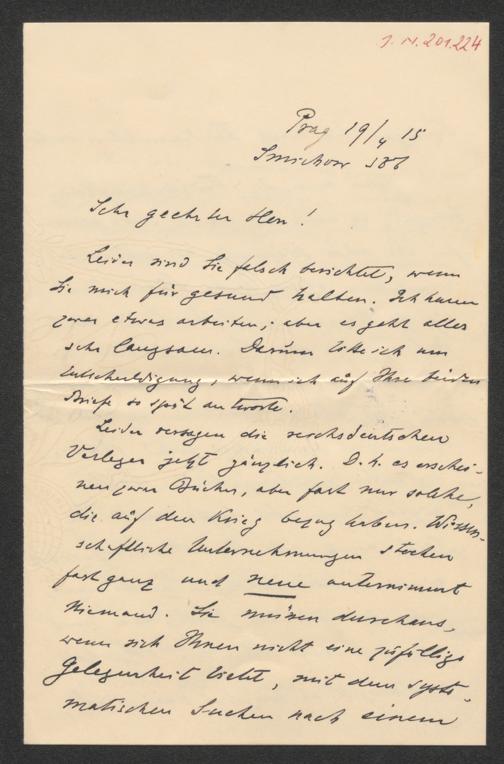 J. N. 201.224
Prag 19/4 15
Smichow 586
Sehr geehrter Herr!
Leider sind Sie falsch berichtet, wenn
Sie mich für gesund halten. Ich kann
zwar etwas arbeiten; aber es geht alles
sehr langsam. Darum bitte ich um
Entschuldigung, wenn ich auf Ihre beiden
Briefe so spät antworte.
Leider versagen die reichsdeutschen
Verleger jetzt gänzlich. D. h. es erschei-
nen zwar Bücher, aber fast nur solche,
die auf den Krieg bezug haben. Wissen-
schaftliche Unternehmungen stocken
fast ganz und neue unternimmt
Niemand. Sie müssen durchaus,
wenn sich Ihnen nicht eine zufällige
Gelegenheit bietet, mit dem syste-
matischen Suchen nach einem